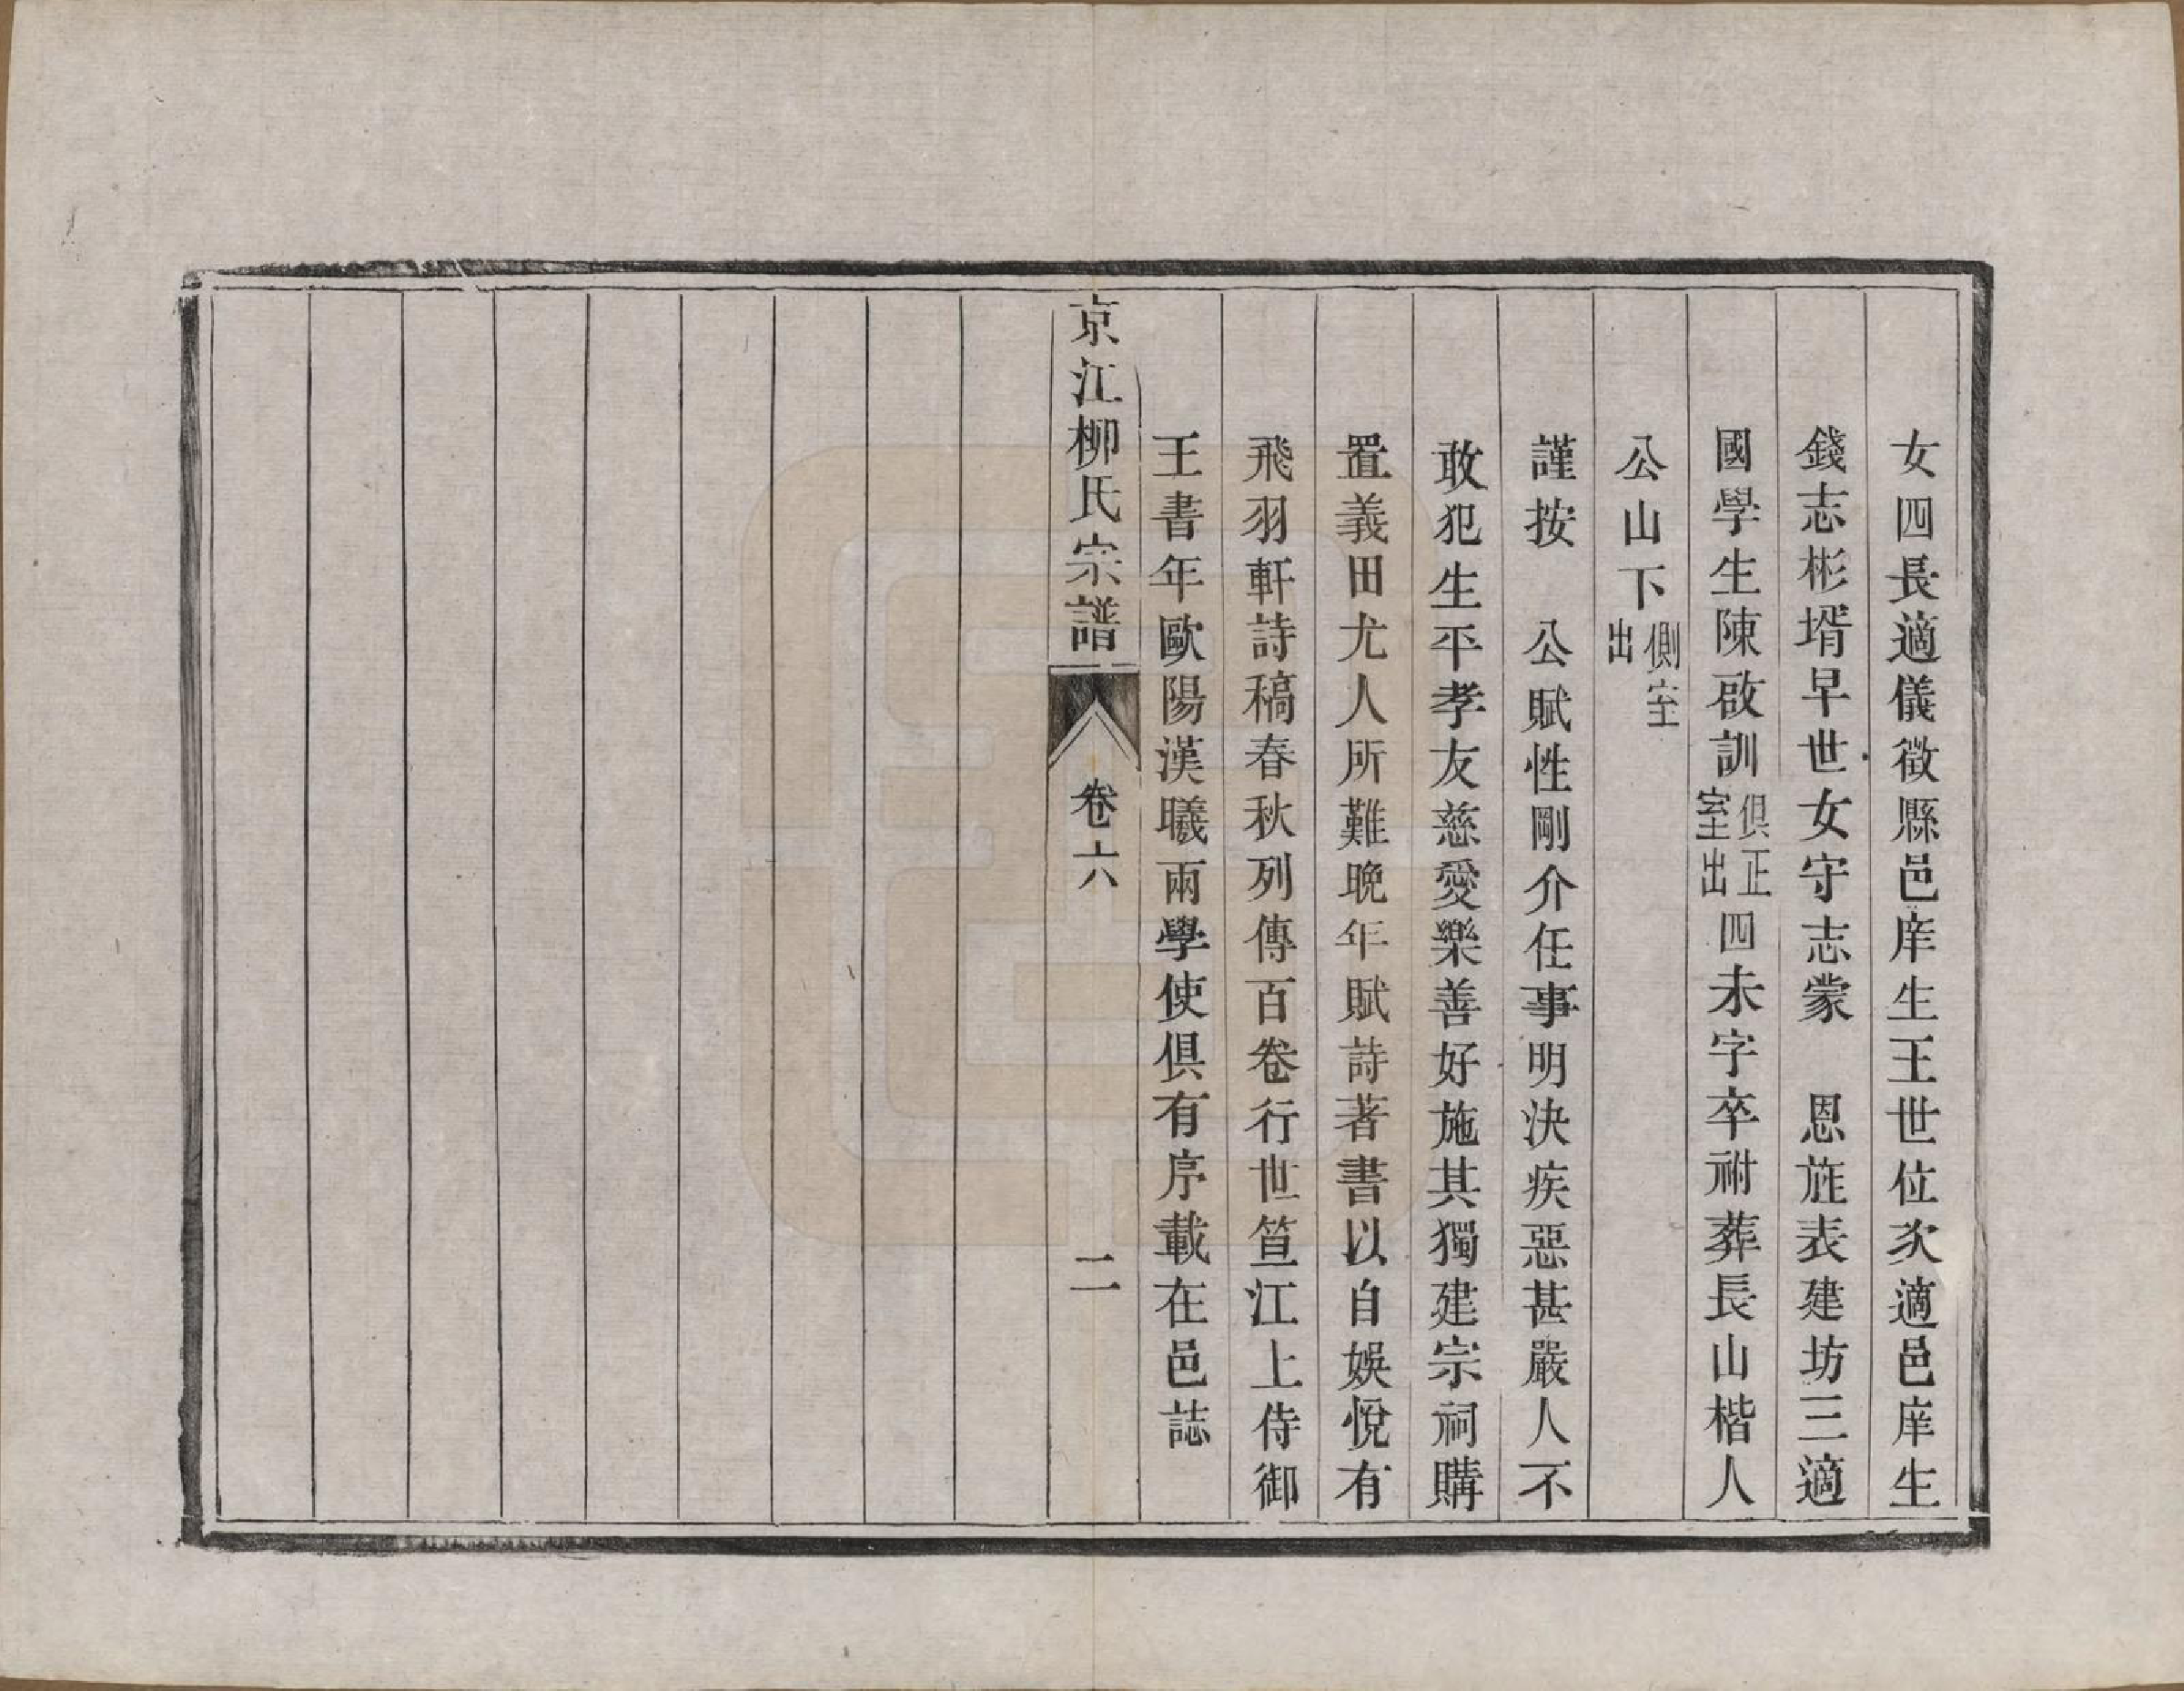 女四長適儀徵縣邑庠生王世位次適邑庠生
錢志彬壻早世女守志蒙　恩旌表建坊三適
國學生陳啟訓俱正室出四未字卒祔葬長山楷人
公山下側室出
謹按　公賦性剛介任事明決疾惡甚嚴人不
敢犯生平孝友慈愛樂善好施其獨建宗祠購
置義田尤人所難晚年賦詩著書以自娛悅有
飛羽軒詩稿春秋列傳百卷行世笪江上侍御
王書年歐陽漢曦兩學使俱有序載在邑誌
京江柳氏宗譜　卷六　二